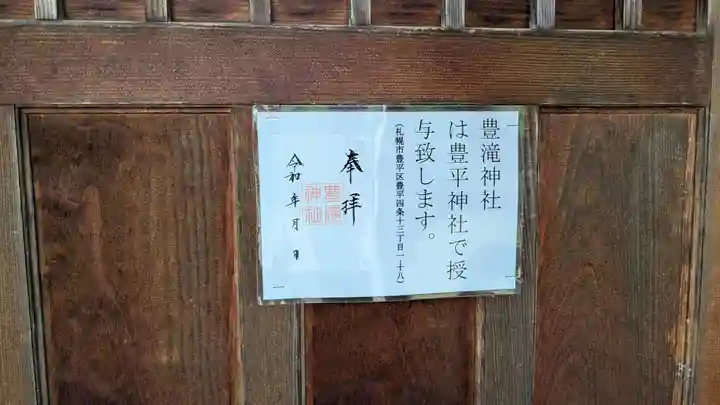 豊滝神社
は豊平神社で授
与致します。
(札幌市豊平区豊平四条十三丁目一-十八)
奉拝
豊滝
神社
令和 年 月 日